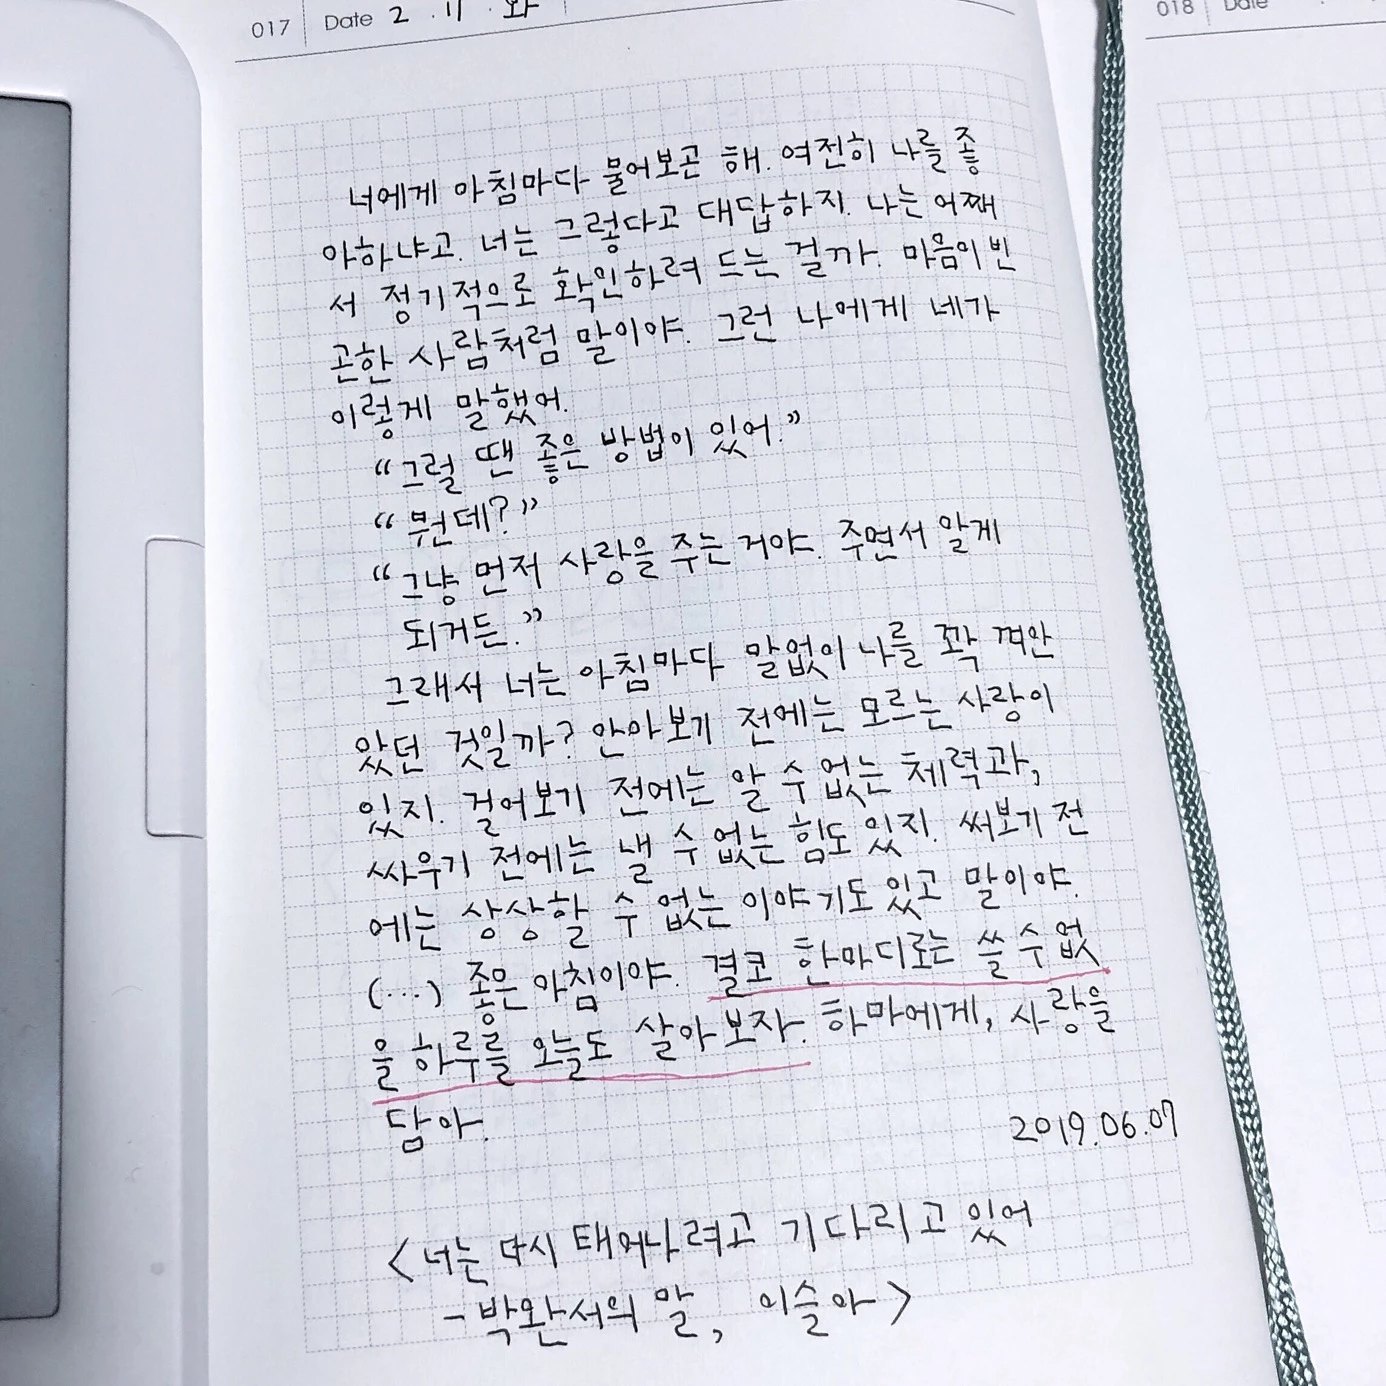 017 Date 2 . 11 . 화
018 Date
너에게 아침마다 물어보곤 해. 여전히 나를 좋
아하냐고. 너는 그렇다고 대답하지. 나는 어째
서 정기적으로 확인하려 드는 걸까. 마음이 빈
곤한 사람처럼 말이야. 그런 나에게 네가
이렇게 말했어.
“그럴 땐 좋은 방법이 있어.”
“뭔데?”
“그냥 먼저 사랑을 주는 거야. 주면서 알게
되거든.”
그래서 너는 아침마다 말없이 나를 꽉 껴안
았던 것일까? 안아보기 전에는 모르는 사랑이
있지. 걸어보기 전에는 알 수 없는 체력과,
싸우기 전에는 낼 수 없는 힘도 있지. 써보기 전
에는 상상할 수 없는 이야기도 있고 말이야.
(…) 좋은 아침이야. 결코 한마디로는 쓸 수 없
을 하루를 오늘도 살아보자. 하마에게, 사랑을
담아.
2019.06.07
<너는 다시 태어나려고 기다리고 있어
- 박완서의 말, 이슬아>